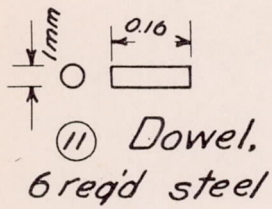 1mm
0.16
11 Dowel,
6 req'd steel